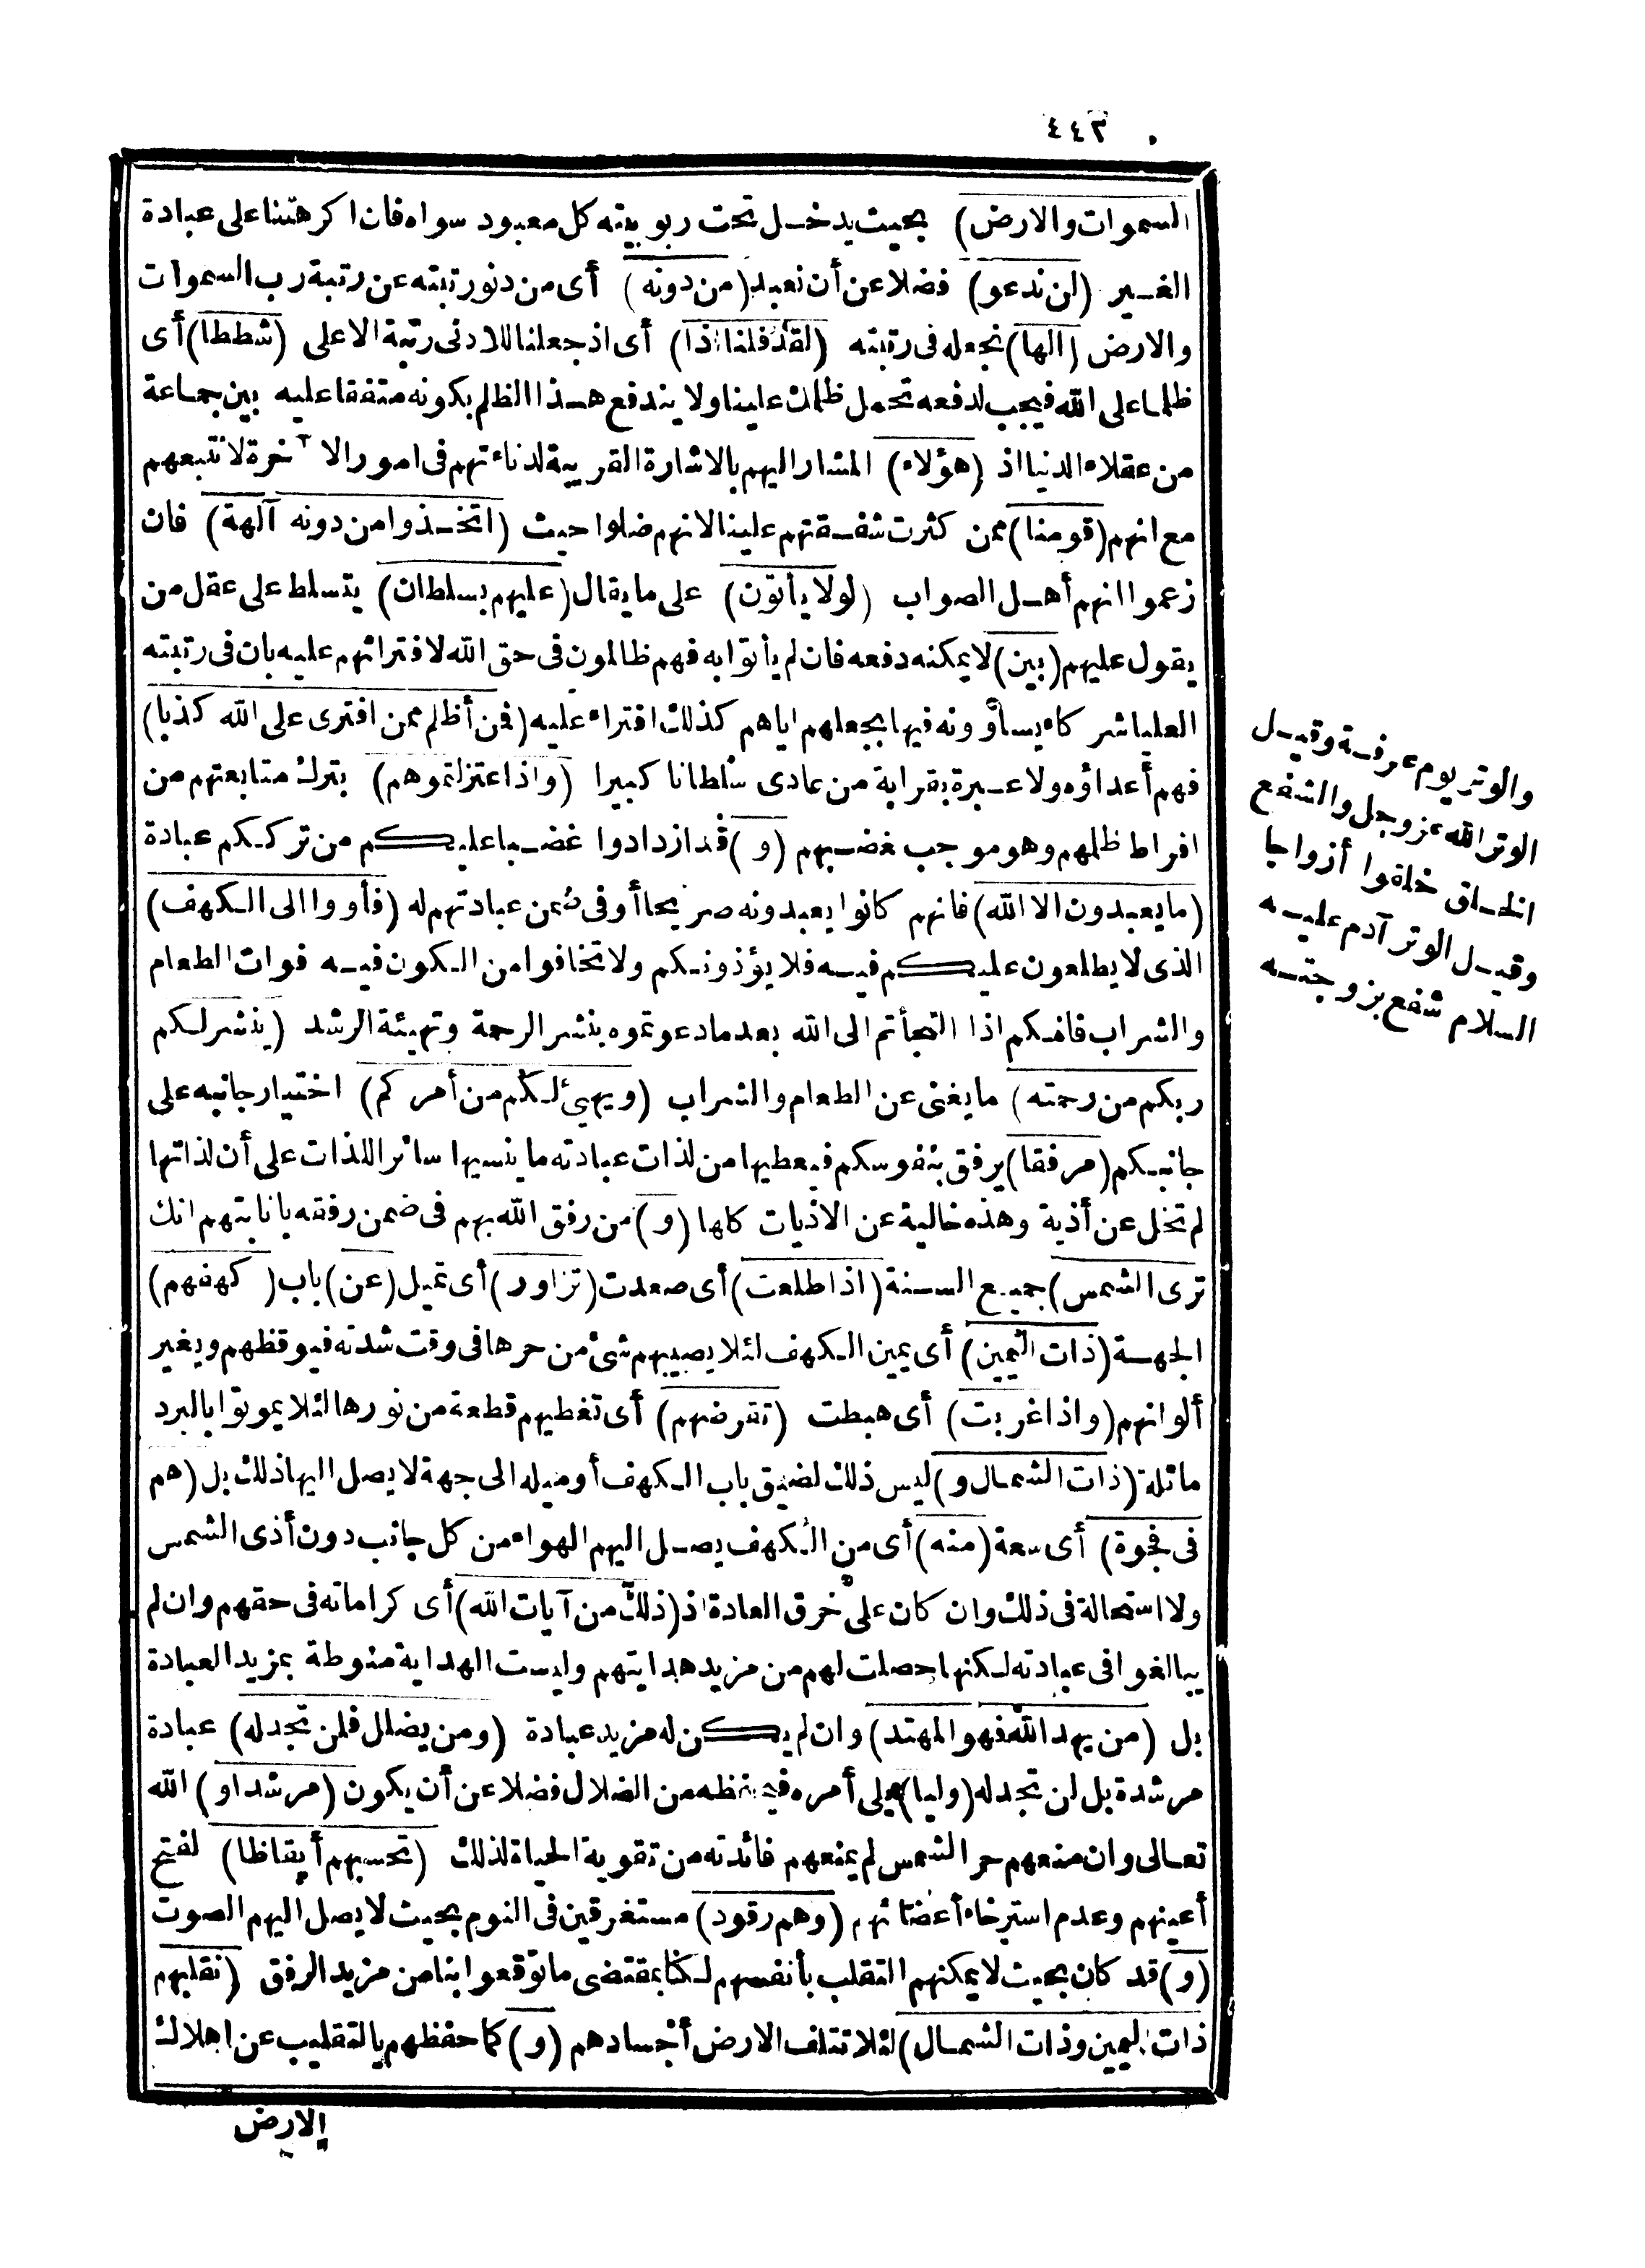 ٤٤٣
السموات والارض) بحيث يدخل تحت ربوبيته كل معبود سواه فان اكرهتنا على عبادة
الغير (لن ندعو) فضلا عن أن نعبد (من دونه) أى من دنو رتبته عن رتبة رب السموات
والارض (الها) نجعله فى رتبته (لقد قلنا اذا) أى اذ جعلنا للادنى رتبة الاعلى (شططا) أى
ظلما على الله فيجب لدفعه تحمل ظلمك علينا ولا يندفع هذا الظلم بكونه متفقا عليه بين جماعة
من عقلاء الدنيا اذ (هؤلاء) المشار اليهم بالاشارة القريبة لدناءتهم فى امور الآخرة لا نتبعهم
مع انهم (قومنا) ممن كثرت شفقتهم علينا لانهم ضلوا حيث (اتخذوا من دونه آلهة) فان
زعموا انهم أهل الصواب (لولا يأتون) على ما يقال (عليهم بسلطان) يتسلط على عقل من
يقول عليهم (بين) لا يمكنه دفعه فان لم يأتوا به فهم ظالمون فى حق الله لافترائهم عليه بان فى رتبته
العليا شركاء يساوونه فيها بجعلهم اياهم كذلك افتراء عليه (فمن أظلم ممن افترى على الله كذبا)
فهم أعداؤه ولا عبرة بقرابة من عادى سلطانا كبيرا (واذ اعتزلتموهم) بترك متابعتهم من
افراط ظلمهم وهو موجب غضبهم (و) قد ازدادوا غضبا عليكم من ترككم عبادة
(ما يعبدون الا الله) فانهم كانوا يعبدونه صريحا أو فى ضمن عبادتهم له (فأووا الى الكهف)
الذى لا يطلعون عليكم فيه فلا يؤذونكم ولا تخافوا من الكون فيه فوات الطعام
والشراب فانكم اذا التجأتم الى الله بعد ما دعوتموه بنشر الرحمة وتهيئة الرشد (ينشر لكم
ربكم من رحمته) ما يغنى عن الطعام والشراب (ويهيئ لكم من أمركم) اختيار جانبه على
جانبكم (مرفقا) يرفق بنفوسكم فيعطيها من لذات عبادته ما ينسيها سائر اللذات على أن لذاتها
لم تخل عن أذية وهذه خالية عن الاذيات كلها (و) من رفق الله بهم فى ضمن رفقه بانابتهم انك
ترى الشمس) جميع السنة (اذا طلعت) أى صعدت (تزاور) أى تميل (عن) باب (كهفهم)
الجهة (ذات اليمين) أى يمين الكهف لئلا يصيبهم شئ من حرها فى وقت شدته فيوقظهم ويغير
ألوانهم (واذا غربت) أى هبطت (تقرضهم) أى تغطيهم قطعة من نورها لئلا يموتوا بالبرد
مائلة (ذات الشمال و) ليس ذلك لضيق باب الكهف أو ميله الى جهة لا يصل اليها ذلك بل (هم
فى فجوة) أى سعة (منه) أى من الكهف يصل اليهم الهواء من كل جانب دون أذى الشمس
ولا استحالة فى ذلك وان كان على خرق العادة اذ (ذلك من آيات الله) أى كراماته فى حقهم وان لم
يبالغوا فى عبادته لكنها حصلت لهم من مزيد هدايتهم وليست الهداية منوطة بمزيد العبادة
بل (من يهد الله فهو المهتد) وان لم يكن له مزيد عبادة (ومن يضلل فلن تجد له) عبادة
مرشدة بل لن تجد له (وليا) يلى أمره فيحفظه من الضلال فضلا عن أن يكون (مرشدا و) الله
تعالى وان منعهم حر الشمس لم يمنعهم فائدته من تقوية الحياة لذلك (تحسبهم أيقاظا) لفتح
أعينهم وعدم استرخاء أعضائهم (وهم رقود) مستغرقين فى النوم بحيث لا يصل اليهم الصوت
(و) قد كان بحيث لا يمكنهم التقلب بأنفسهم لكنا بمقتضى ما توقعوا بنا من مزيد الرفق (نقلبهم
ذات اليمين وذات الشمال) لئلا تتلف الارض أجسادهم (و) كما حفظهم بالتقليب عن اهلاك
الارض
والوتر يوم عرفة وقيل
الوتر الله عز وجل والشفع
الخلق خلقوا أزواجا
وقيل الوتر آدم عليه
السلام شفع بزوجته